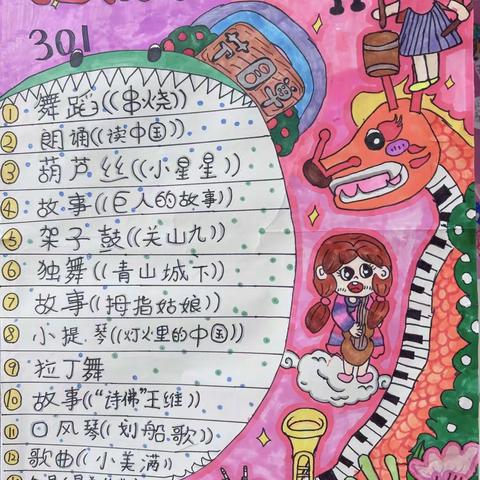 301
节目单
① 舞蹈《串烧》
② 朗诵《读中国》
③ 葫芦丝《小星星》
④ 故事《巨人的故事》
⑤ 架子鼓《关山九》
⑥ 独舞《青山城下》
⑦ 故事《拇指姑娘》
⑧ 小提琴《灯火里的中国》
⑨ 拉丁舞
⑩ 故事《“诗佛”王维》
⑪ 口风琴《划船歌》
⑫ 歌曲《小美满》